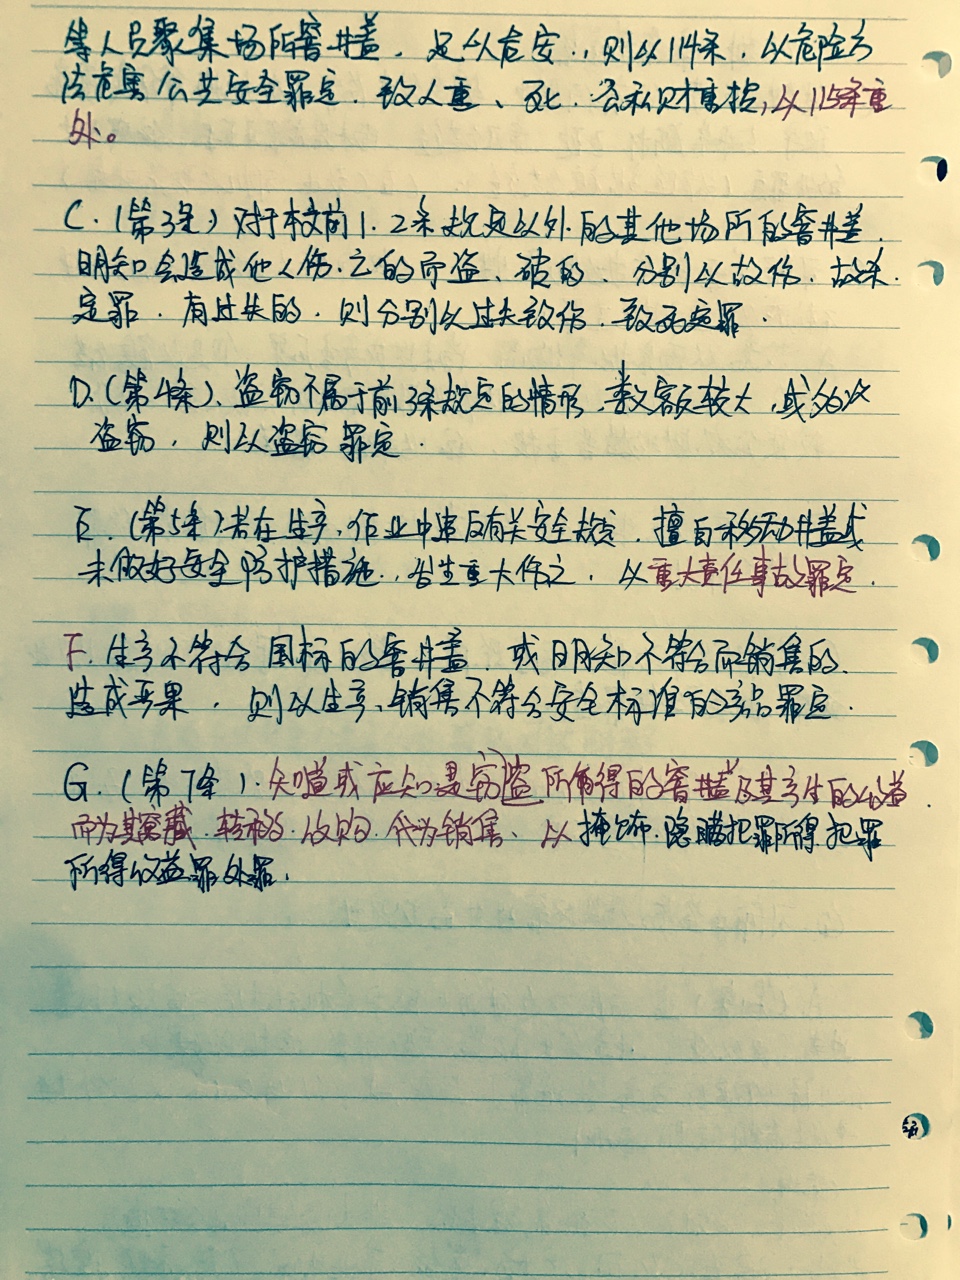 等人员聚集场所窨井盖，足以危安，则以114条，以危险方
法危害公共安全罪定，致人重、死、公私财重损，以115条重
处。
C.（第3条）对于本文前1.2条规定以外的其他场所的窨井盖，
明知会造成他人伤.亡的而盗、破的，分别以故伤、故杀.
定罪．有过失的，则分别以过失致伤、致死定罪．
D.（第4条）、盗窃不属于前3条规定的情形，数额较大，或多次
盗窃，则以盗窃罪定．
E.（第5条）若在生产、作业中违反有关安全规定，擅自移动井盖或
未做好安全防护措施，发生重大伤亡，以重大责任事故罪定．
F. 生产不符合国标的窨井盖，或明知不符合而销售的．
造成严果，则以生产、销售不符合安全标准的产品罪定．
G.（第7条）.知道或应知是窃盗所得的窨井盖及其产生的收益
而为其窝藏、转移、收购、代为销售、以掩饰.隐瞒犯罪所得犯罪
所得收益罪处罪．